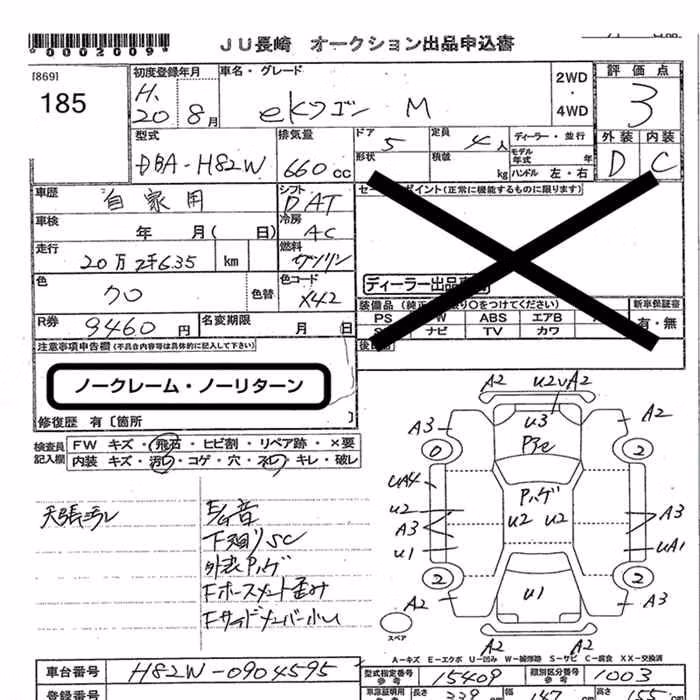 *0002009*
JU長崎 オークション出品申込書
[869]
185
初度登録年月
H. 20 8月
車名・グレード
ekワゴン M
2WD
・
4WD
評価点
3
型式
DBA-H82W
排気量
660cc
ドア
5
定員
4人
ディーラー・並行
モデル年式 年
形状
積載 kg
ハンドル 左・右
外装 内装
D C
車歴
自家用
シフト
DAT
車検
年 月( 日)
冷房
AC
走行
km
燃料
ガソリン
色
クロ
色替
色コード
X42
R券
9460円
名変期限
月 日
セールスポイント(正常に機能するものに限ります)
装備品
PS
ABS
エアB
ナビ
TV
カワ
新車保証書
有・無
注意事項申告欄(不具合内容等は具体的に記入して下さい)
ノークレーム・ノーリターン
修復歴 有 [箇所 ]
検査員記入欄
FW キズ・飛石・ヒビ割・リペア跡・×要
内装 キズ・汚レ・コゲ・穴・スレ・キレ・破レ
天張汚レ
下廻りSC
A2
U2
A2
A3
U3
A2
0
2
UA4
U2
A3
U1
U2 U2
A3
UA1
2
2
A2
U1
A3
A2
A2
スペア
A-キズ E-エクボ U-凹み W-補修跡 S-サビ C-腐食 XX-交換済
車台番号
H82W-0904595
型式指定番号
参考
15409
類別区分番号
参考
1003
登録番号
長さ
339
幅
147
高さ
155